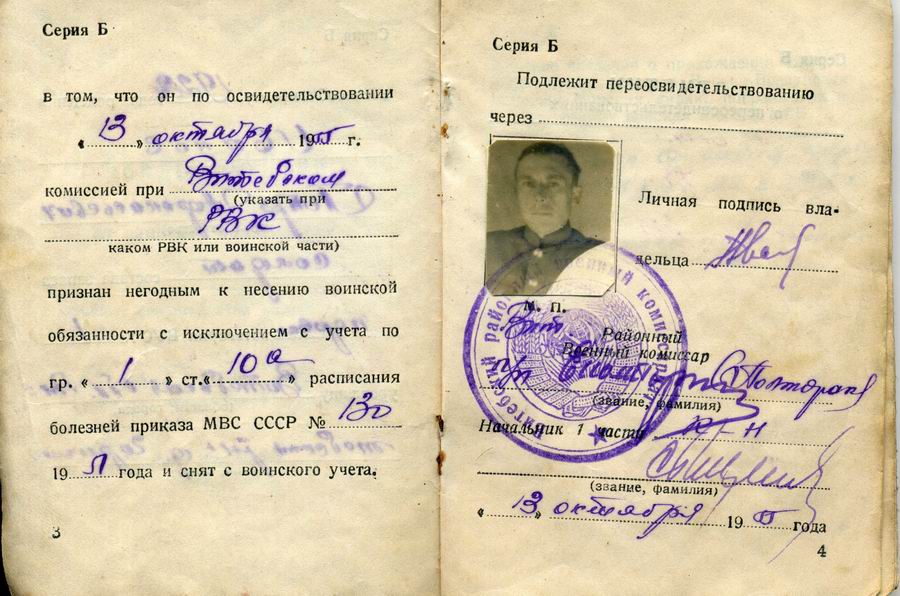 Серия Б
в том, что он по освидетельствовании
« 13 » октября 19 г.
комиссией при Витебском
(указать при
РВК
каком РВК или воинской части)
признан негодным к несению воинской
обязанности с исключением с учета по
гр. « 1 » ст. « 10а » расписания
болезней приказа МВС СССР № 130
19 51 года и снят с воинского учета.
3
Серия Б
Подлежит переосвидетельствованию
через
Личная подпись вла-
дельца
М. П.
Вит. Районный
Военный комиссар
п/п
(звание, фамилия)
Начальник 1 части к-н
(звание, фамилия)
« 13 » октября 19 года
4